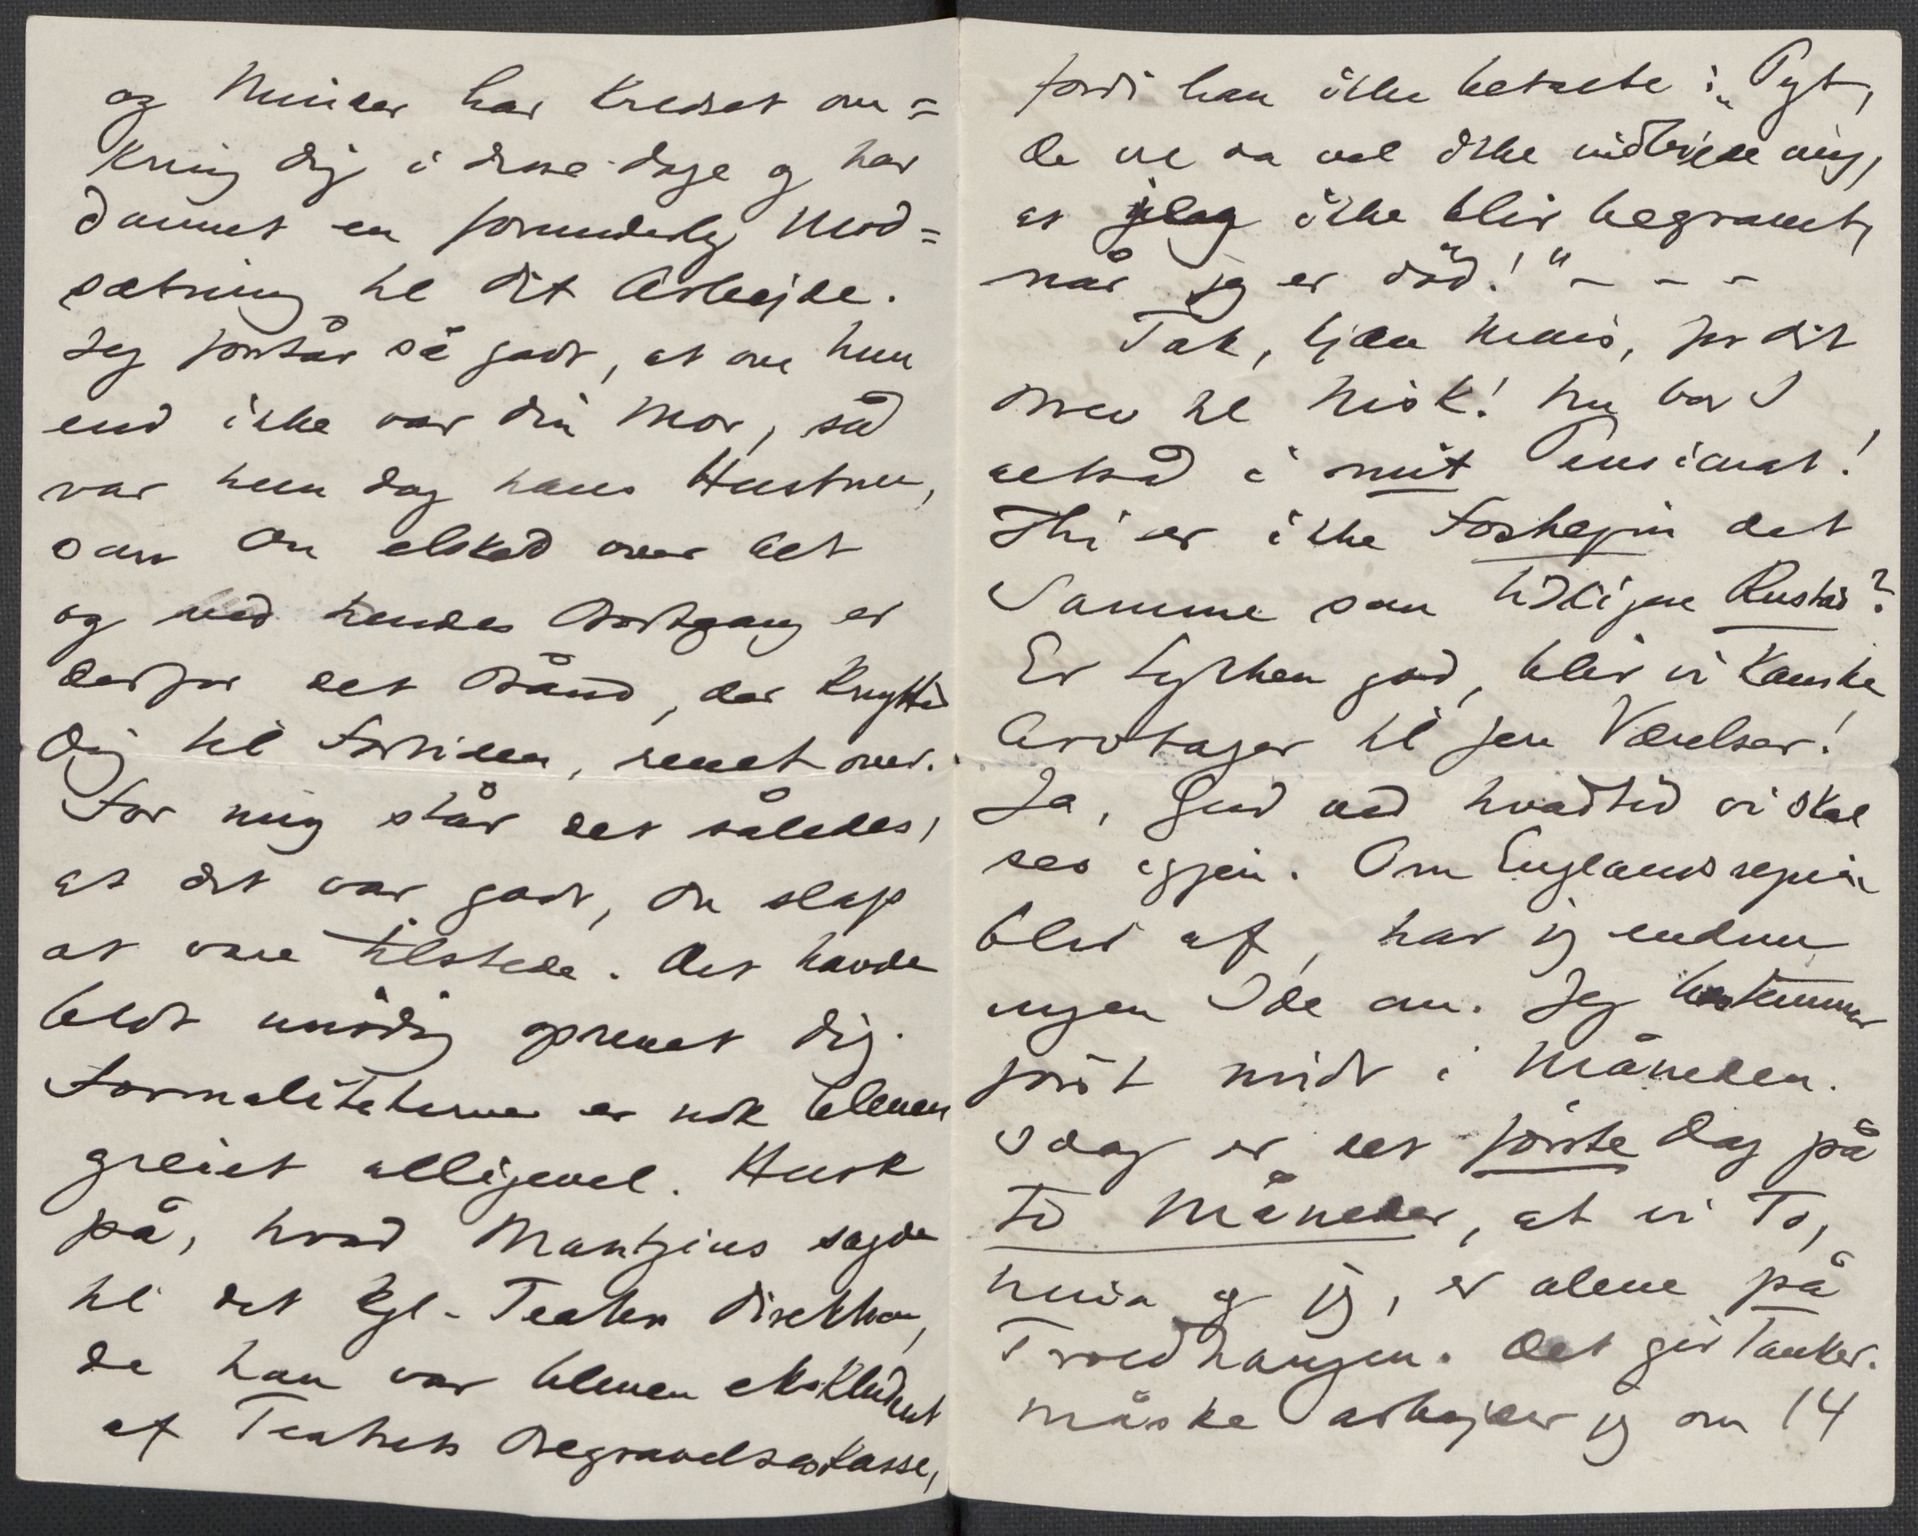 og Minder har kredset om=
kring dig i disse dage og har
dannet en forunderlig Mod=
sætning til dit Arbejde.
Jeg forstår så godt, at om hun
end ikke var din Mor, så
var hun dog hans Hustru,
som Du elsked over alt
og med hendes Bortgang er
derfor det Bånd, der knytted
Dig til Fortiden, revet over.
For mig står det således,
at det var godt, Du slap
at være tilstede. Det havde
blot unødig oprevet Dig.
Formaliteterne er nok bleven
greiet alligevel. Husk
på, hvad Mantzius sagde
til det kgl. Teaters Direktion,
da han var bleven ekskluderet
af Teatrets Begravelseskasse,
fordi han ikke betalte: „Pyt,
De vil da vel ikke indbilde mig,
at jeg ikke blir begravet,
når jeg er død!" - - -
Tak, kjære for dit
Brev til Nisk! Nu bor I
altså i mit Pensionat!
Thi er ikke det
Samme som tidligere Rustad?
Er Lykken god, blir vi kanske
Arvtager til jere Værelser!
Ja, Gud ved hvadtid vi skal
ses igjen. Om Englandsrejsen
blir af, har jeg endnu
ingen Ide om. Jeg bestemmer
først midt i Måneden.
Idag er det første Dag på
to Måneder, at vi To,
Nina og jeg, er alene på
Troldhaugen. Det gir Tanker.
Måske arbejder jeg om 14